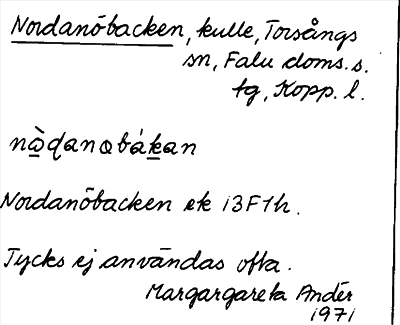 Nordanöbacken, kulle, Torsångs
sn, Falu doms. s.
tg, Kopp. l.
nɷ̀ɖanɷbákan
Nordanöbacken ek 13F1h.
Tycks ej användas ofta.
Margargareta Andér
1971